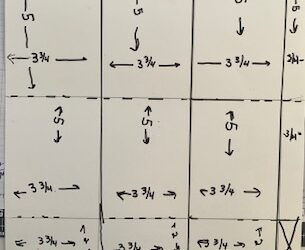 5 5 5 5
3 3/4 3 3/4 3 3/4
5 5 5
3 3/4 3 3/4 3 3/4 3/4
3 3/4 3 3/4 3 3/4